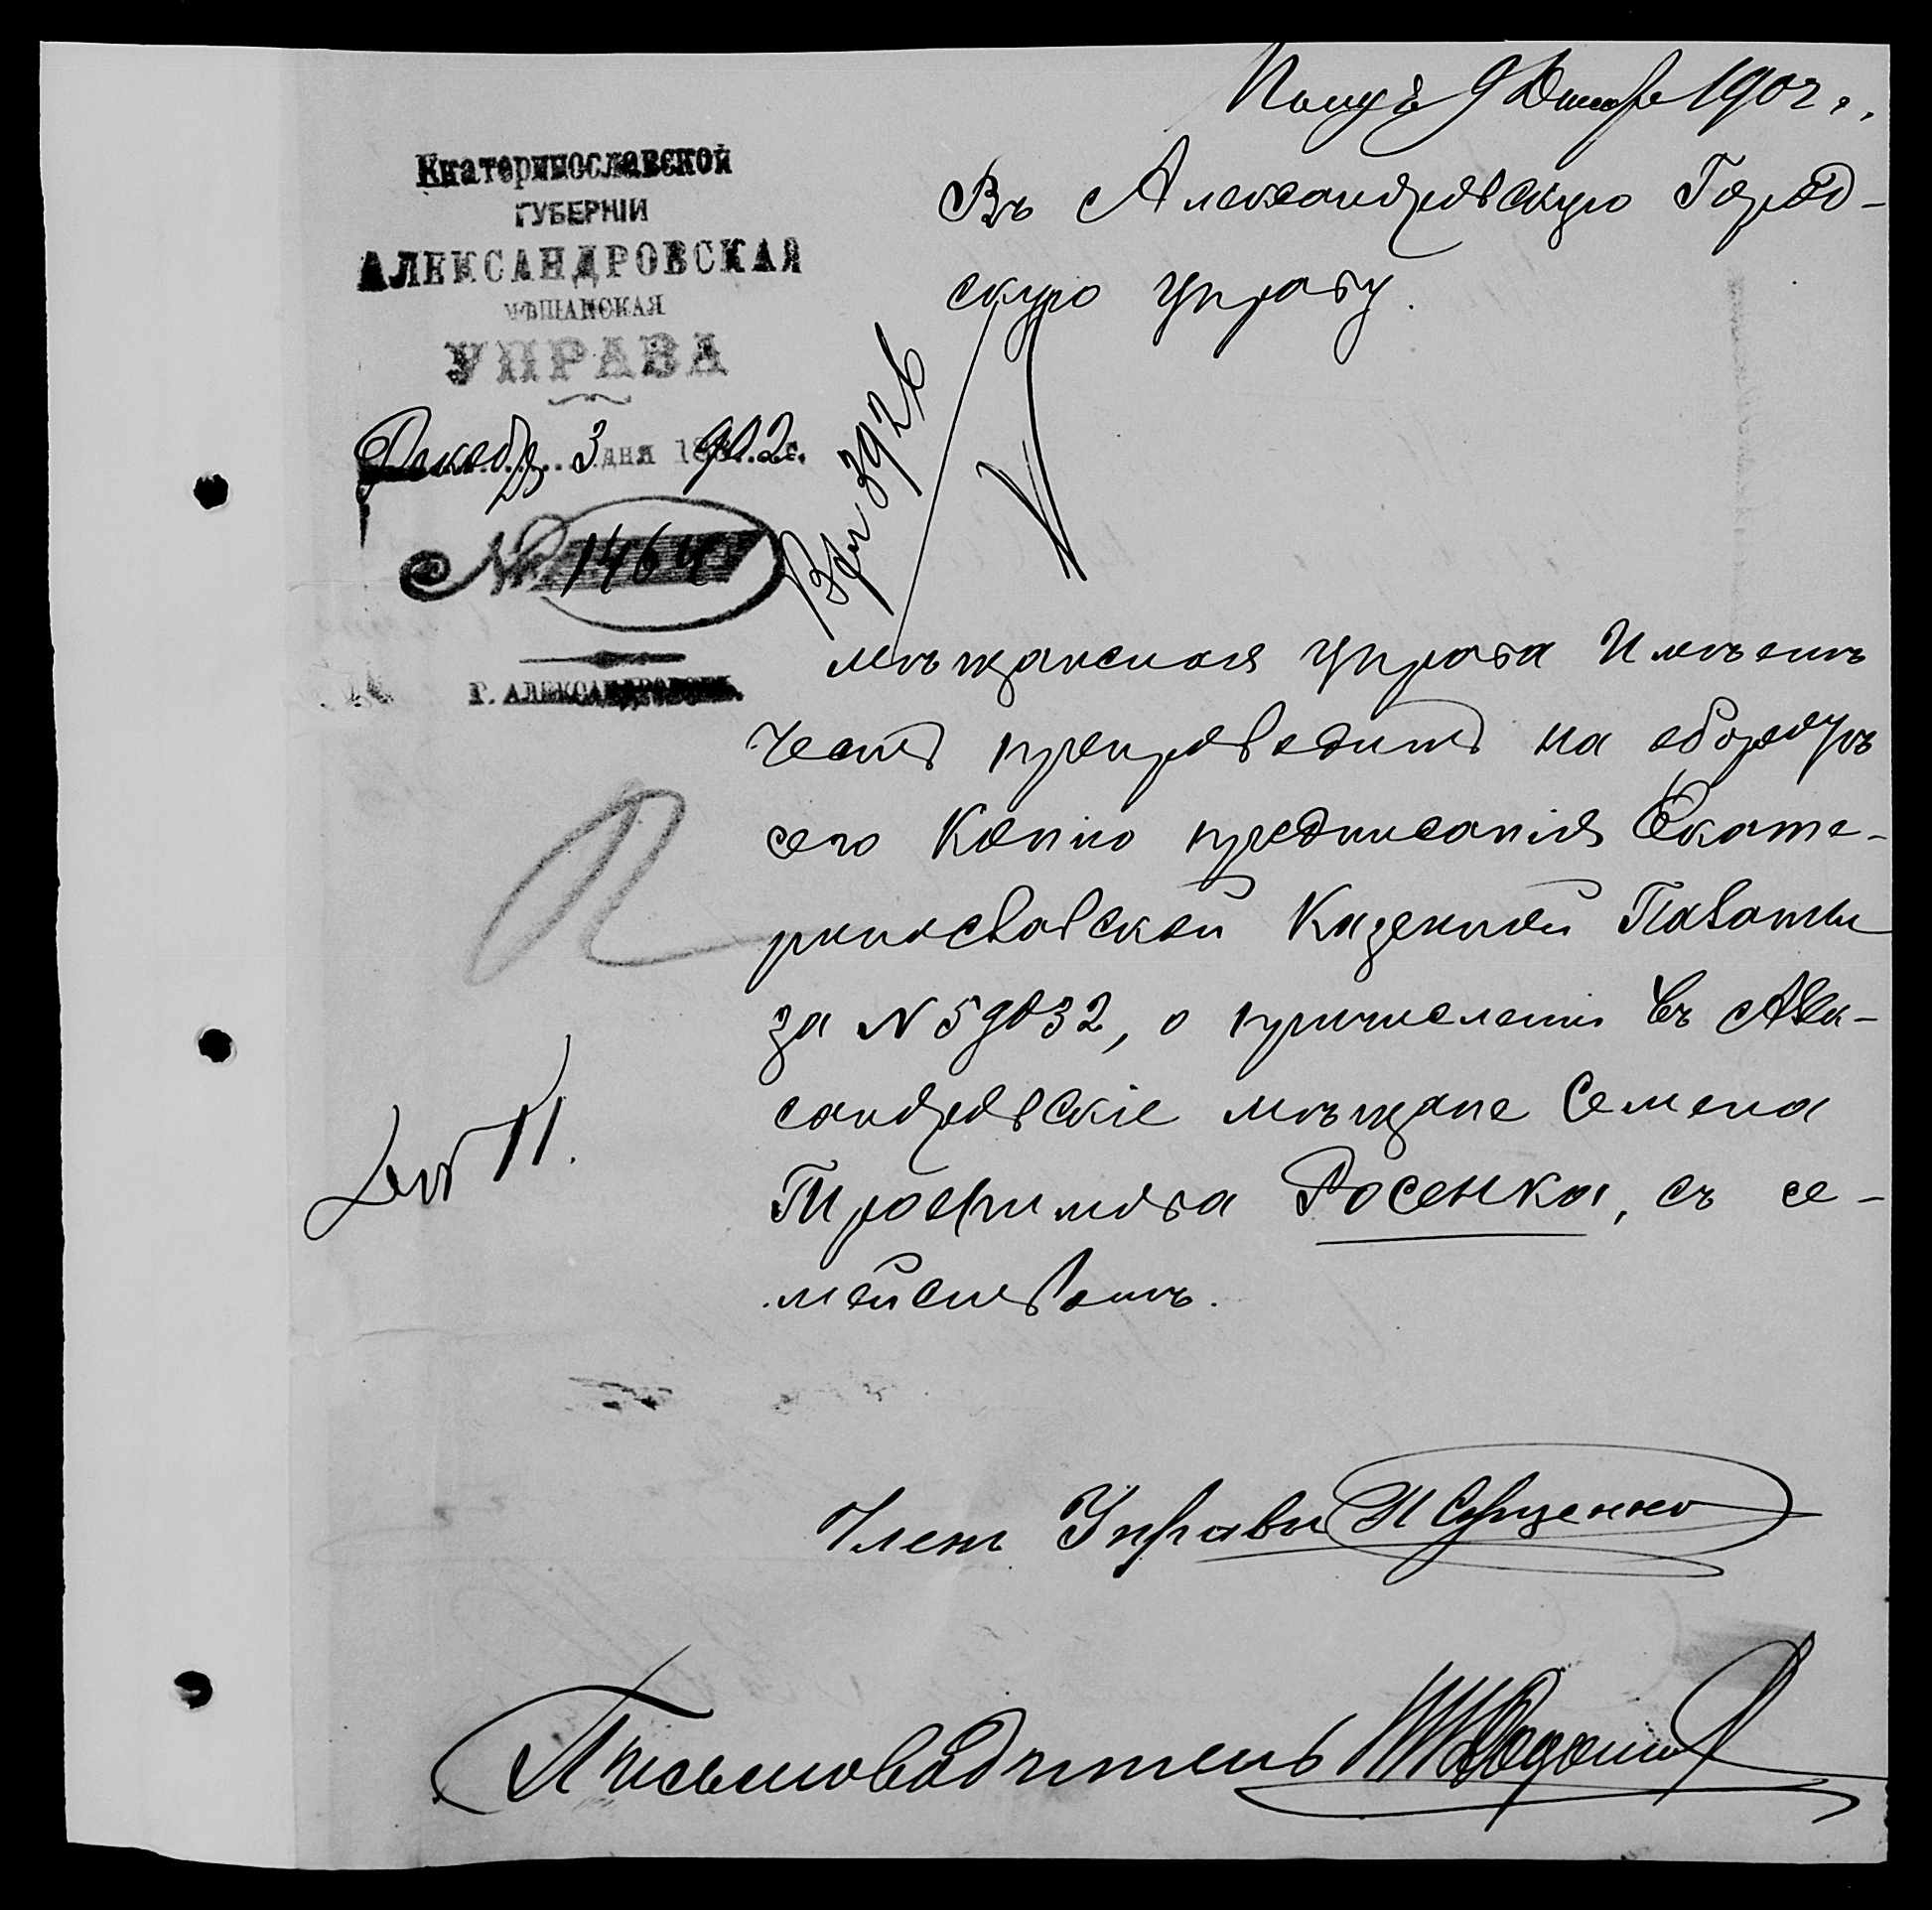 Получ. 9 Декабр 1902 г.
Екатеринославской
ГУБЕРНІИ
АЛЕКСАНДРОВСКАЯ
МѢЩАНСКАЯ
УПРАВА
Декабр. 3 дня 1902 г.
№ 1464
Г. АЛЕКСАНДРОВСКЪ.
Въ Александровскую Город-
скую управу.
Вх № 3926
мѣщанская управа имѣетъ
честь препроводить на оборотѣ
сего копію предписанія Екате-
ринославской Казенной Палаты
за № 59032, о причисленіи въ Алек-
сандровскіе мѣщане Семена
Трофимова Росенка, съ се-
мействомъ.
Членъ Управы
Письмоводитель